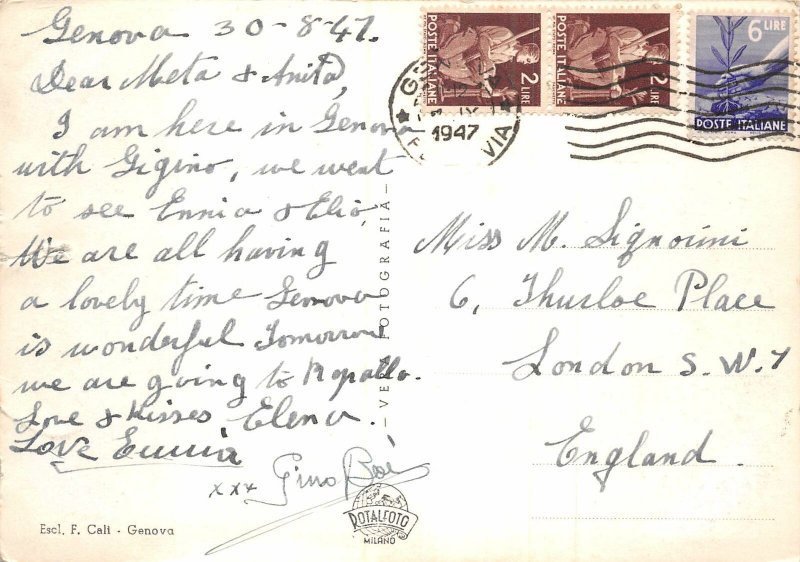 Genova 30-8-47.
Dear Meta & Anita,
I am here in Genova
with Gigino, we went
to see Ennia & Elio,
We are all having
a lovely time Genova
is wonderful Tomorrow
we are going to Rapallo.
Love & Kisses, Elena.
Love Ennia
xxx Gino
Escl. F. Cali - Genova
VERA FOTOGRAFIA
ROTALFOTO
MILANO
POSTE ITALIANE
2 LIRE
POSTE ITALIANE
2 LIRE
6 LIRE
POSTE ITALIANE
1947
Miss M. Signorini
6, Thurloe Place
London S.W.7
England.